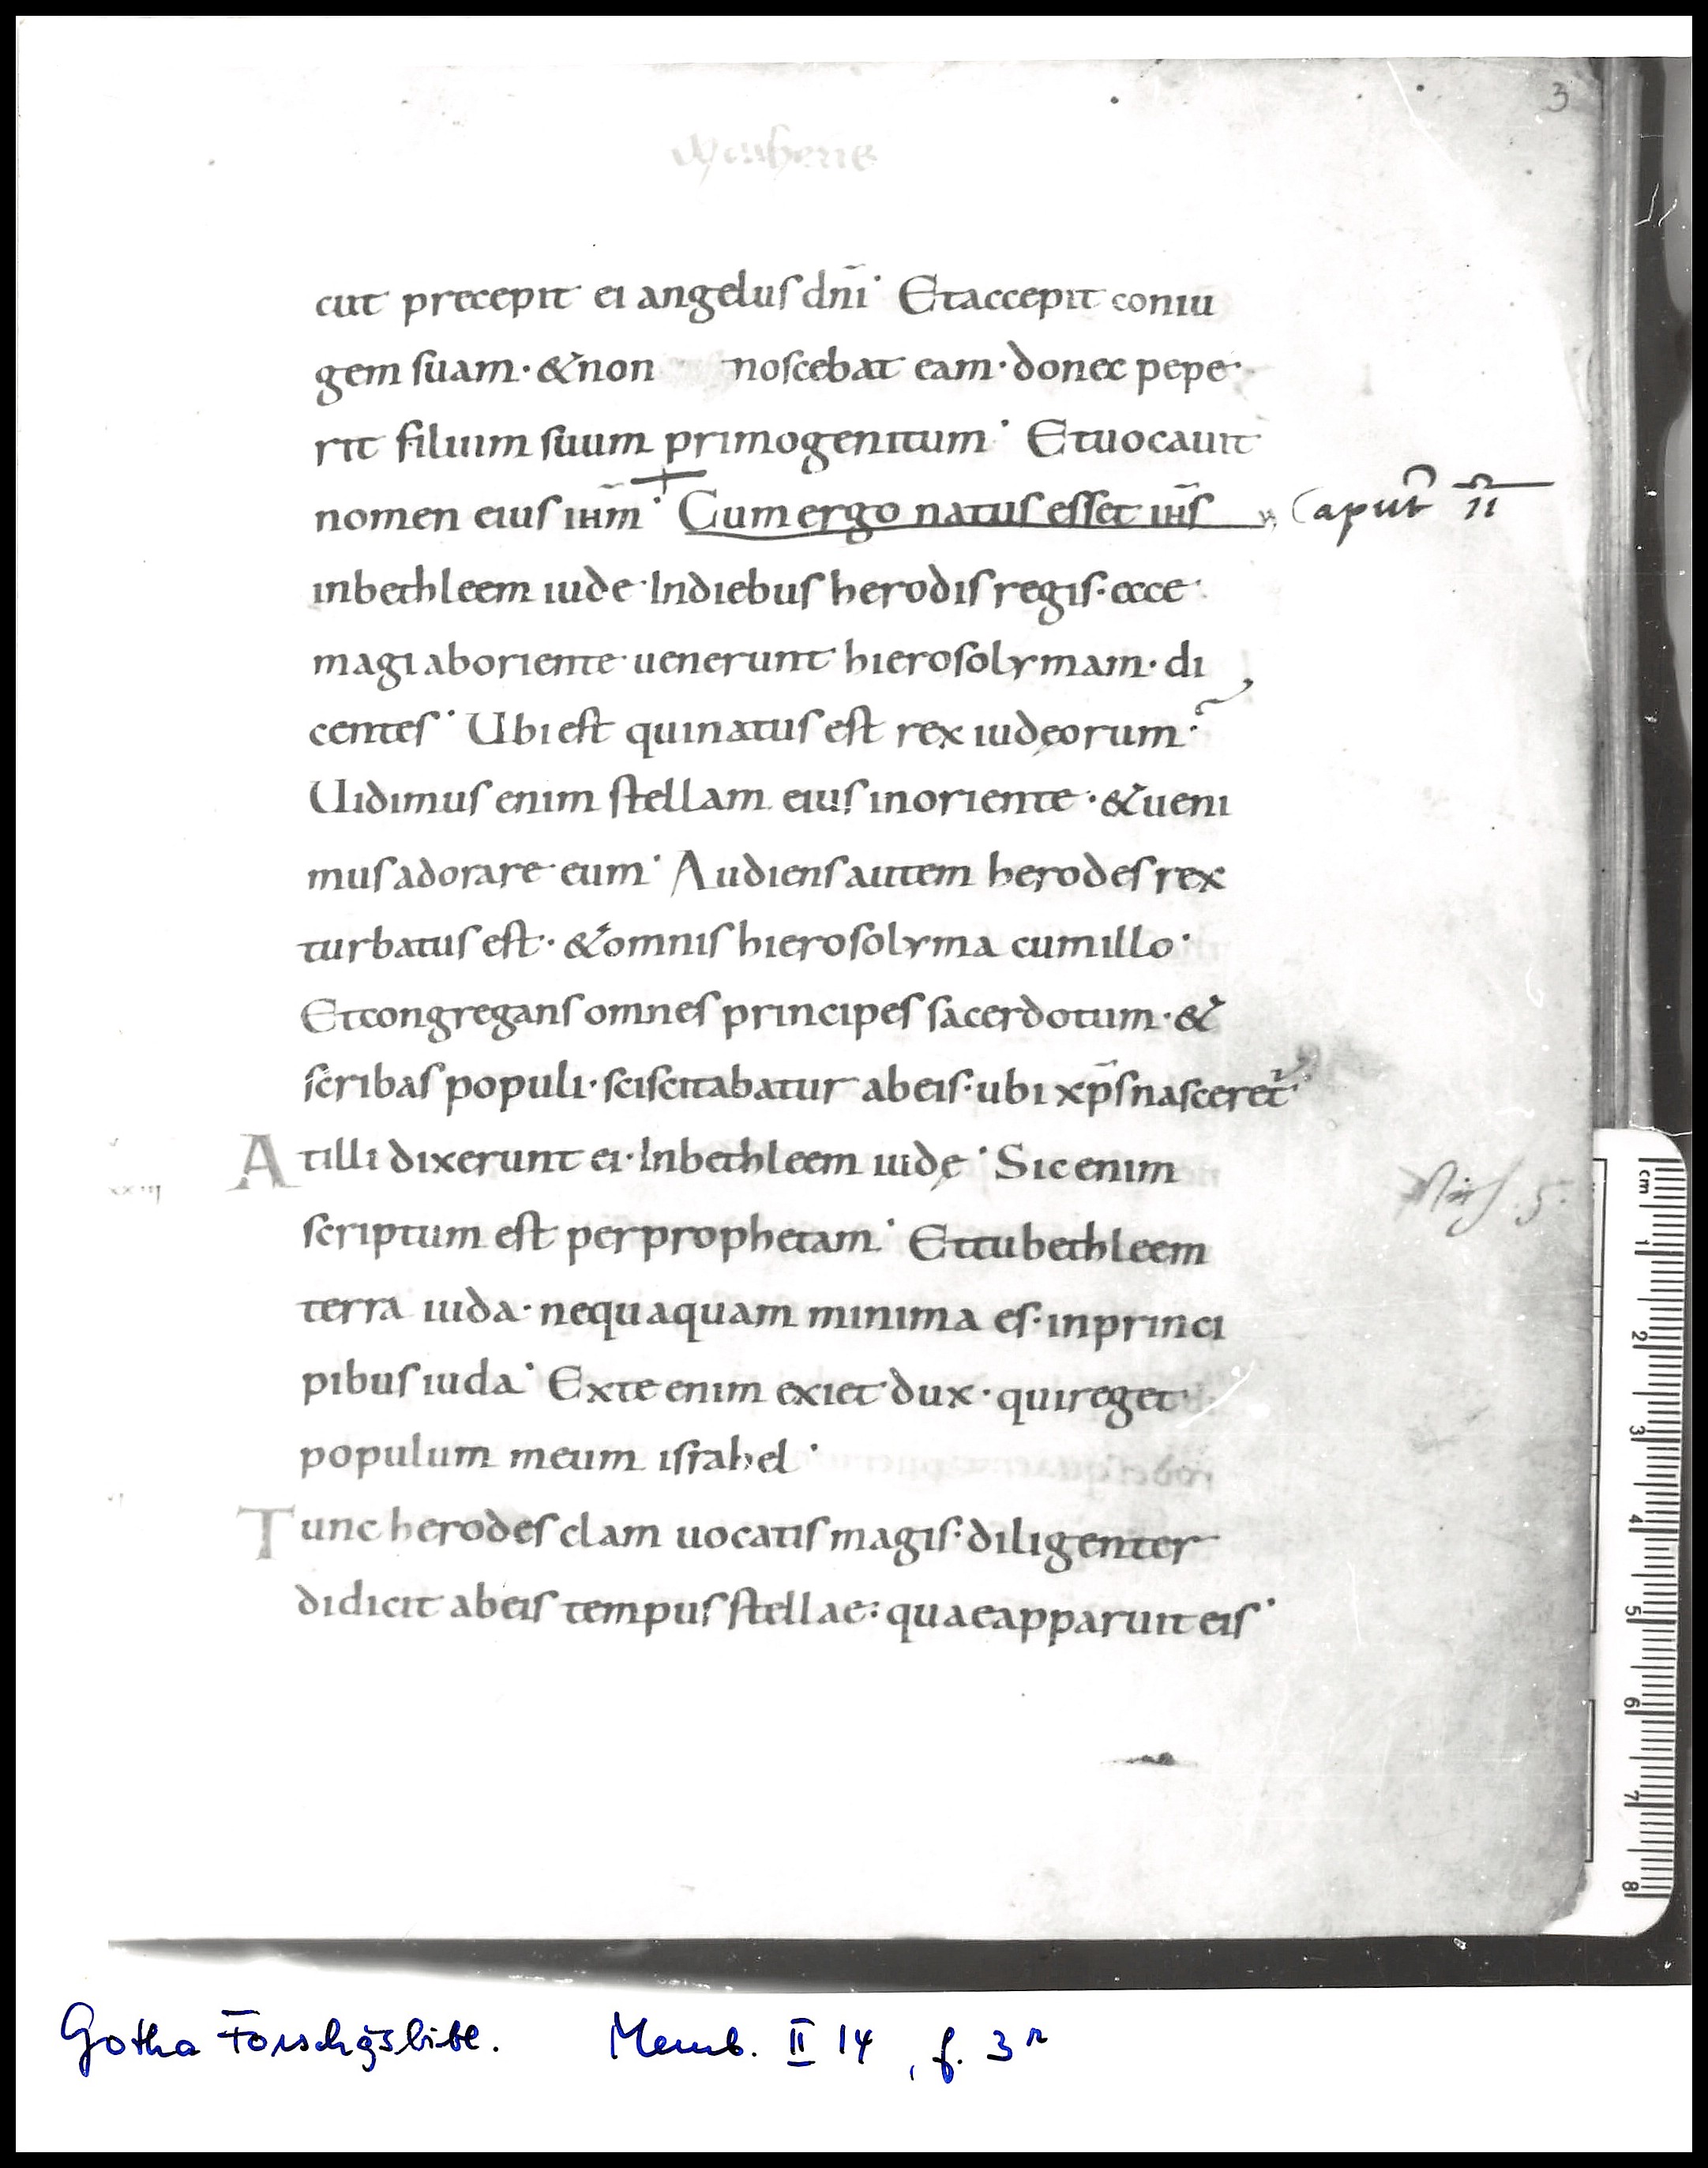 3
cut precepit ei angelus dnī· Et accepit coniu
gem suam· & non noscebat eam· donec pepe
rit filium suum primogenitum· Et uocauit
nomen eius ihm̄· Cum ergo natus esset ihs̄ Caput II
in bethleem iude· In diebus herodis regis· ecce
magi ab oriente uenerunt hierosolymam· di
centes· Ubi est qui natus est rex iudęorum?
Uidimus enim stellam eius in oriente· & ueni
mus adorare eum· Audiens autem herodes rex
turbatus est· & omnis hierosolyma cum illo·
Et congregans omnes principes sacerdotum· &
scribas populi· sciscitabatur ab eis· ubi xp̄s nasceret̄·
At illi dixerunt ei· In bethleem iudę· Sic enim
xxiij
Mich. 5.
scriptum est per prophetam· Et tu bethleem
terra iuda· nequaquam minima es· in princi
pibus iuda· Ex te enim exiet dux· qui reget
populum meum israhel·
Tunc herodes clam uocatis magis· diligenter
didicit ab eis tempus stellae· quae apparuit eis·
cm 1 2 3 4 5 6 7 8
Gotha Forschgsbibl. Memb. II 14, f. 3r